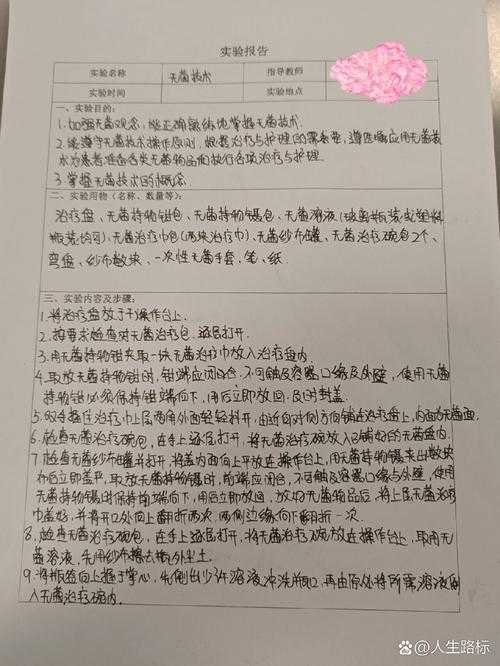 实验报告
实验名称 无菌技术 指导教师
实验时间 实验地点
一、实验目的:
1.加强无菌观念,能正确熟练地掌握无菌技术.
2.能遵守无菌技术操作原则,根据治疗与护理的需要,遵医嘱应用无菌技
术为患者准备各类无菌物品和执行各项治疗与护理.
3.掌握无菌技术的概念
二、实验用物(名称、数量等):
治疗盘、无菌持物钳包、无菌持物镊包、无菌溶液(玻璃瓶装或塑料
瓶装均可)、无菌治疗巾包(两块治疗巾)、无菌纱布罐、无菌治疗碗包2个、
弯盘、纱布数块、一次性无菌手套、笔、纸.
三、实验内容及步骤:
1.将治疗盘放于干操作台上.
2.按要求检查对无菌治疗包.逐层打开.
3.用无菌持物钳夹取一块无菌治疗巾放入治疗盘内.
4.取放无菌持物钳时,钳端应闭合.不可触及容器口缘及外壁,使用无菌
持物钳必须保持钳端向下,用后立即放回.及时封盖.
5.双手捏住治疗巾上层两角外面轻轻抖开,由近向对侧方向铺在治疗盘上,内面为无菌面
6.检查无菌治疗碗包,在手上逐层打开,将无菌治疗碗放入已铺好的无菌盘内.
7.检查无菌纱布罐并打开,将盖内面向上平放在操作台上,用无菌持物镊夹出数块
布后立即盖严,取放无菌持物镊时,前端应闭合,不可触及容器口缘与外壁.使用
无菌持物镊时保持前端向下,用后立即放回,放好无菌物品后,将上层无菌治疗
巾盖好,并将开口处向上翻折两次,两侧边缘向下翻折一次.
8.检查无菌治疗碗包,在手上逐层打开,将无菌治疗碗放在操作台上,取用无
菌溶液,先用纱布擦去瓶外尘土.
9.将瓶签向上握于掌心,先倒出少许溶液冲洗瓶口,再由原处将所需溶液倒
入无菌治疗碗内.
百家号/人生路标